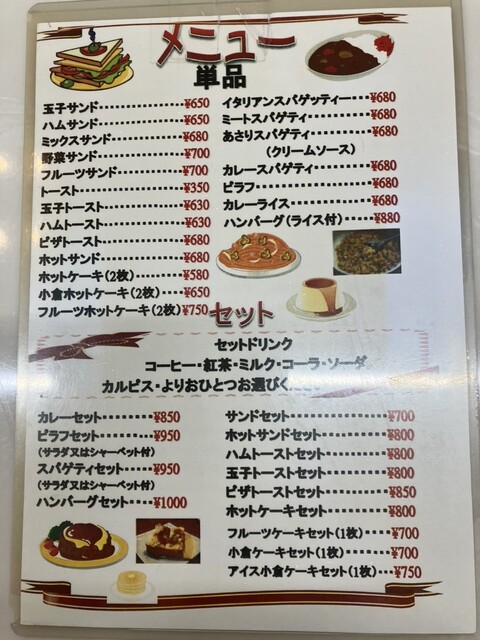 メニュー
単品
玉子サンド……………¥650
ハムサンド……………¥650
ミックスサンド………¥680
野菜サンド……………¥700
フルーツサンド………¥700
トースト………………¥350
玉子トースト…………¥630
ハムトースト…………¥630
ピザトースト…………¥680
ホットサンド…………¥680
ホットケーキ(2枚)……¥580
小倉ホットケーキ(2枚)…¥650
フルーツホットケーキ(2枚)¥750
イタリアンスパゲッティー…¥680
ミートスパゲティ………¥680
あさりスパゲティ………¥680
(クリームソース)
カレースパゲティ………¥680
ピラフ…………………¥680
カレーライス…………¥680
ハンバーグ(ライス付)…¥880
セット
セットドリンク
コーヒー・紅茶・ミルク・コーラ・ソーダ
カルピス・よりおひとつお選びく
カレーセット………¥850
ピラフセット………¥950
(サラダ又はシャーベット付)
スパゲティセット……¥950
(サラダ又はシャーベット付)
ハンバーグセット……¥1000
サンドセット…………¥700
ホットサンドセット……¥800
ハムトーストセット……¥800
玉子トーストセット……¥800
ピザトーストセット……¥850
ホットケーキセット……¥800
フルーツケーキセット(1枚)…¥700
小倉ケーキセット(1枚)……¥700
アイス小倉ケーキセット(1枚)…¥750